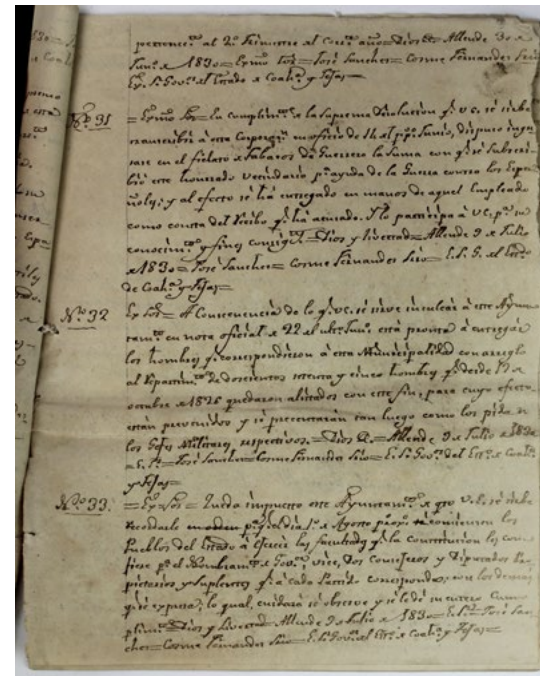 pertenec.te al 2.o Trimestre del Corr.te año = Dios &a. Allende 30 de
Jun.o de 1830 = Exmo Sor = José Sanchez = Cosme Fernandes Srio
Ex. S. Gov.r del Estado de Coah.a y Tejas =
N.o 31
= Exmo Sor = En cumplim.to de la Suprema Resolucion q.e V.E. se sirbe
transcribir á esta Corporaz.n en oficio de 14 del pp.o Junio, dispuso ingre
sare en el fielato de Tabacos de Guerrero la Suma con q.e se subscri-
bió este honrado Vecindario p.a ayuda de la Guerra contra los Espa
ñoles; y al efecto se há entregado en manos de aquel Empleado
como consta del Recibo q.e há acusado. Y lo participa á V.E. p.a su
conocim.to y fines consig.tes = Dios y Livertad = Allende 9. de Julio
de 1830 = José Sanchez = Cosme Fernandes Srio = E. S. G. del Est.o
de Coah.a y Tejas =
N.o 32
Ex Sor = A Consecuencia de lo q.e V.E. se sirve inculcar á este Ayun
tam.to en nota oficial de 22 del ult.o Jun.o está pronta á entregar
los hombres q.e correspondieron á esta Municipalidad con arreglo
al Repartim.to de doscientos setenta y cinco hombres q.e desde 17 de
octubre de 1826 quedaron alistados con este fin, para cuyo efecto
están prevenidos y se presentarán tan luego como los pida n
los Gefes Militares respectivos. = Dios &a. = Allende 9 de Julio de 1830
= E. S. = José Sanchez = Cosme Fernandes Srio = E. S. Gov.r del Est.o de Coah.a
y Tejas =
N.o 33.
= Ex.o Sor = Queda impuesto este Ayuntam.to de q.to V.E. se sirbe
Recordarle p.a q.e el dia 1.o de Agosto proxi
Pueblos del Estado á Ejercer las facultades q.e la Constitucion les con
fiere p.a el Nombram.to de Gov.r, vice, Dos Consejeros y Diputados Pro
pietarios y Suplentes q.e á cada Partido corresponda, con los demas
q.e se expresa; lo qual, cuidará se observe y se le dé su entero Cum
plim.to = Dios y Livertad. Allende 9 de Julio de 1830 = E. S. = José San
chez = Cosme Fernandes Srio = E. S. Gov.r del Est.o de Coah.a y Tejas =